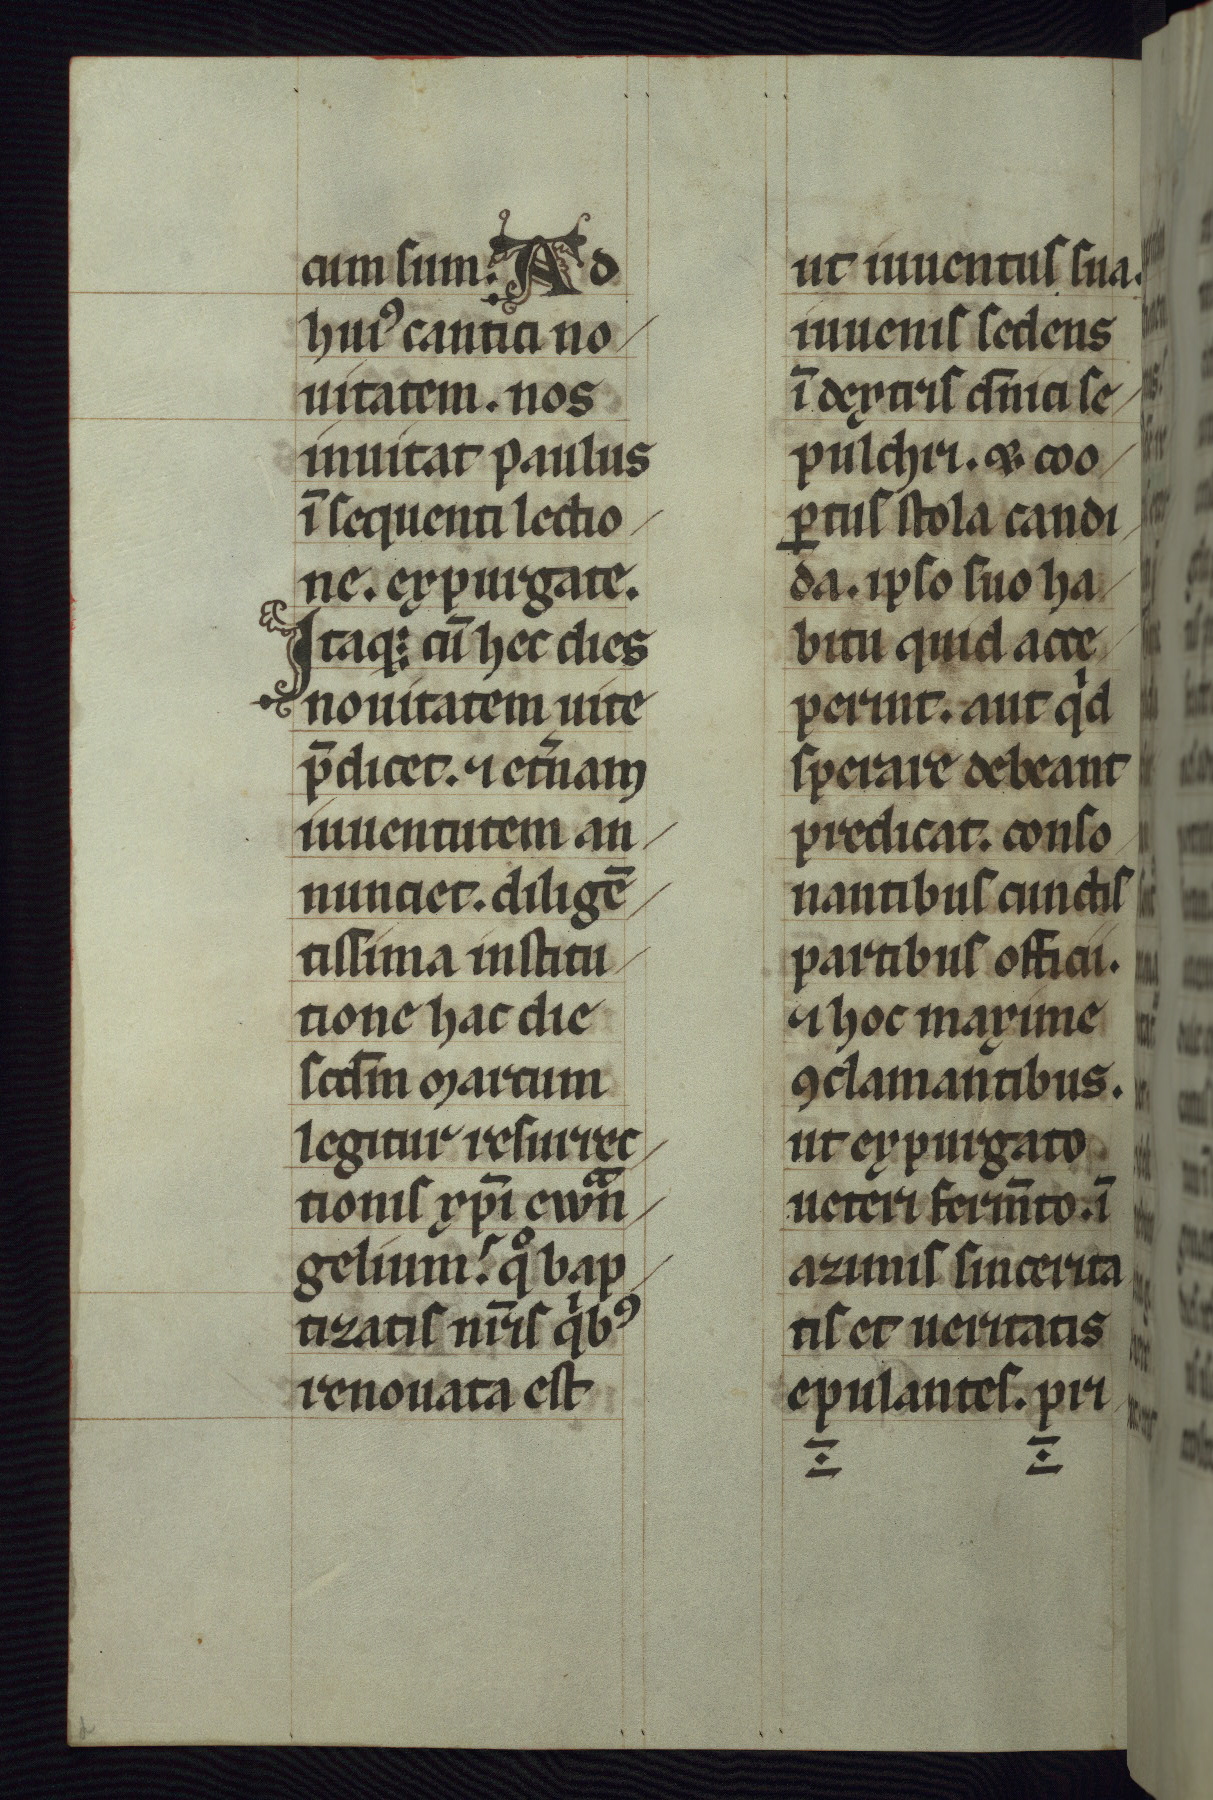 cum sum. Ad
huiꝰ cantici no
uitatem. nos
inuitat paulus
ī sequenti lectio
ne. expurgate.
Itaqꝫ cū hec dies
nouitatem uite
p̄dicet. ⁊ et̄nam
iuuentutem an
nunciet. diligē
tissima institu
tione hac die
scd̄m marcum
legitur resurrec
tionis xp̄i ewan̄
gelium. qͦ bap
tizatis nr̄is qͥbꝰ
renouata est
ut iuuentus sua.
iuuenis sedens
ī dextris dn̄ici se
pulchri. & coo
ꝑtus stola candi
da. ipso suo ha
bitu quid acce
perint. aut qͥd
sperare debeant
predicat. conso
nantibus cunctis
partibus officii.
⁊ hoc maxime
ꝯclamantibus.
ut expurgato
ueteri ferm̄to. ī
azimis sincerita
tis et ueritatis
epulantes. pri